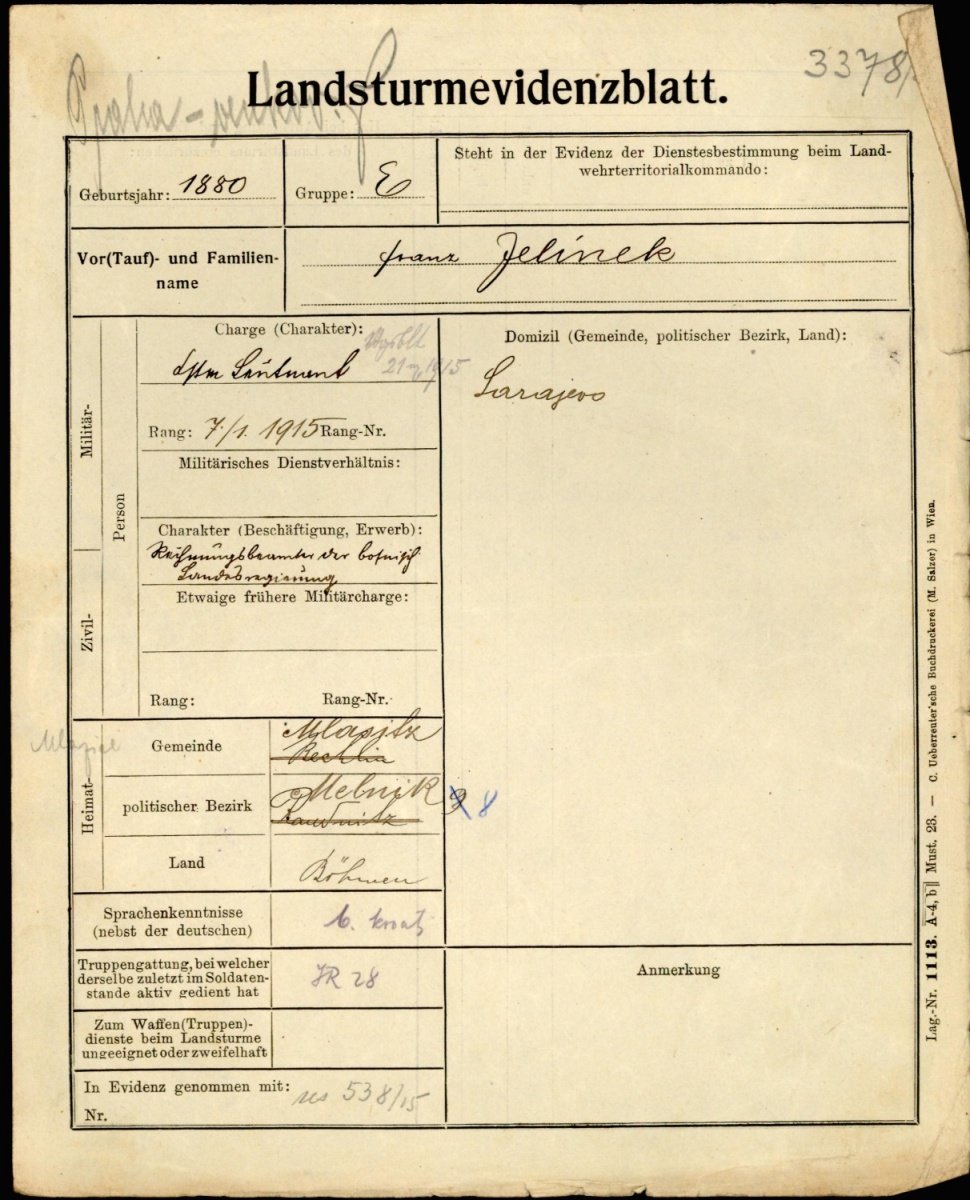 3378/
Praha-venkov.
Landsturmevidenzblatt.
Geburtsjahr: 1880
Gruppe: E
Steht in der Evidenz der Dienstesbestimmung beim Land-
wehrterritorialkommando:
Vor(Tauf)- und Familien-
name
Franz Jelinek
Militär-
Zivil-
Person
Charge (Charakter):
Lstm Leutnant
Rang: 7./1. 1915 Rang-Nr.
Militärisches Dienstverhältnis:
Charakter (Beschäftigung, Erwerb):
Rechnungsbeamter der bosnisch
Landesregierung
Etwaige frühere Militärcharge:
Rang: Rang-Nr.
Domizil (Gemeinde, politischer Bezirk, Land):
Sarajevo
Heimat-
Gemeinde
Mlasitz
Bechlin
politischer Bezirk
Melnik
Raudnitz
8
Land
Böhmen
Sprachenkenntnisse
(nebst der deutschen)
b. kroat
Truppengattung, bei welcher
derselbe zuletzt im Soldaten-
stande aktiv gedient hat
IR 28
Zum Waffen(Truppen)-
dienste beim Landsturme
ungeeignet oder zweifelhaft
In Evidenz genommen mit:
Nr.
res 538/15
Anmerkung
Lag.-Nr. 1113. A-4, b Must. 23. — C. Ueberreuter'sche Buchdruckerei (M. Salzer) in Wien.